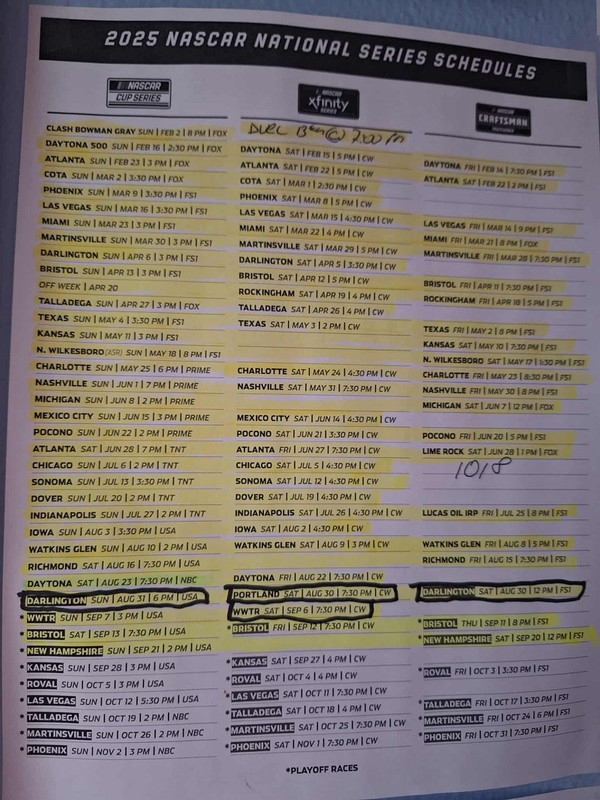 2025 NASCAR NATIONAL SERIES SCHEDULES
NASCAR
CUP SERIES
CLASH BOWMAN GRAY SUN | FEB 2 | 8 PM | FOX
DAYTONA 500 SUN | FEB 16 | 2:30 PM | FOX
ATLANTA SUN | FEB 23 | 3 PM | FOX
COTA SUN | MAR 2 | 3:30 PM | FOX
PHOENIX SUN | MAR 9 | 3:30 PM | FS1
LAS VEGAS SUN | MAR 16 | 3:30 PM | FS1
MIAMI SUN | MAR 23 | 3 PM | FS1
MARTINSVILLE SUN | MAR 30 | 3 PM | FS1
DARLINGTON SUN | APR 6 | 3 PM | FS1
BRISTOL SUN | APR 13 | 3 PM | FS1
OFF WEEK | APR 20
TALLADEGA SUN | APR 27 | 3 PM | FOX
TEXAS SUN | MAY 4 | 3:30 PM | FS1
KANSAS SUN | MAY 11 | 3 PM | FS1
N. WILKESBORO (ASR) SUN | MAY 18 | 8 PM | FS1
CHARLOTTE SUN | MAY 25 | 6 PM | PRIME
NASHVILLE SUN | JUN 1 | 7 PM | PRIME
MICHIGAN SUN | JUN 8 | 2 PM | PRIME
MEXICO CITY SUN | JUN 15 | 3 PM | PRIME
POCONO SUN | JUN 22 | 2 PM | PRIME
ATLANTA SAT | JUN 28 | 7 PM | TNT
CHICAGO SUN | JUL 6 | 2 PM | TNT
SONOMA SUN | JUL 13 | 3:30 PM | TNT
DOVER SUN | JUL 20 | 2 PM | TNT
INDIANAPOLIS SUN | JUL 27 | 2 PM | TNT
IOWA SUN | AUG 3 | 3:30 PM | USA
WATKINS GLEN SUN | AUG 10 | 2 PM | USA
RICHMOND SAT | AUG 16 | 7:30 PM | USA
DAYTONA SAT | AUG 23 | 7:30 PM | NBC
DARLINGTON SUN | AUG 31 | 6 PM | USA
*WWTR SUN | SEP 7 | 3 PM | USA
*BRISTOL SAT | SEP 13 | 7:30 PM | USA
*NEW HAMPSHIRE SUN | SEP 21 | 2 PM | USA
*KANSAS SUN | SEP 28 | 3 PM | USA
*ROVAL SUN | OCT 5 | 3 PM | USA
*LAS VEGAS SUN | OCT 12 | 5:30 PM | USA
*TALLADEGA SUN | OCT 19 | 2 PM | NBC
*MARTINSVILLE SUN | OCT 26 | 2 PM | NBC
*PHOENIX SUN | NOV 2 | 3 PM | NBC
NASCAR
xfinity
SERIES
@ 7:00 PM
DAYTONA SAT | FEB 15 | 5 PM | CW
ATLANTA SAT | FEB 22 | 5 PM | CW
COTA SAT | MAR 1 | 2:30 PM | CW
PHOENIX SAT | MAR 8 | 5 PM | CW
LAS VEGAS SAT | MAR 15 | 4:30 PM | CW
MIAMI SAT | MAR 22 | 4 PM | CW
MARTINSVILLE SAT | MAR 29 | 5 PM | CW
DARLINGTON SAT | APR 5 | 3:30 PM | CW
BRISTOL SAT | APR 12 | 5 PM | CW
ROCKINGHAM SAT | APR 19 | 4 PM | CW
TALLADEGA SAT | APR 26 | 4 PM | CW
TEXAS SAT | MAY 3 | 2 PM | CW
CHARLOTTE SAT | MAY 24 | 4:30 PM | CW
NASHVILLE SAT | MAY 31 | 7:30 PM | CW
MEXICO CITY SAT | JUN 14 | 4:30 PM | CW
POCONO SAT | JUN 21 | 3:30 PM | CW
ATLANTA FRI | JUN 27 | 7:30 PM | CW
CHICAGO SAT | JUL 5 | 4:30 PM | CW
SONOMA SAT | JUL 12 | 4:30 PM | CW
DOVER SAT | JUL 19 | 4:30 PM | CW
INDIANAPOLIS SAT | JUL 26 | 4:30 PM | CW
IOWA SAT | AUG 2 | 4:30 PM | CW
WATKINS GLEN SAT | AUG 9 | 3 PM | CW
DAYTONA FRI | AUG 22 | 7:30 PM | CW
PORTLAND SAT | AUG 30 | 7:30 PM | CW
WWTR SAT | SEP 6 | 7:30 PM | CW
*BRISTOL FRI | SEP 12 | 7:30 PM | CW
*KANSAS SAT | SEP 27 | 4 PM | CW
*ROVAL SAT | OCT 4 | 4 PM | CW
*LAS VEGAS SAT | OCT 11 | 7:30 PM | CW
*TALLADEGA SAT | OCT 18 | 4 PM | CW
*MARTINSVILLE SAT | OCT 25 | 7:30 PM | CW
*PHOENIX SAT | NOV 1 | 7:30 PM | CW
NASCAR
CRAFTSMAN
DAYTONA FRI | FEB 14 | 7:30 PM | FS1
ATLANTA SAT | FEB 22 | 2 PM | FS1
LAS VEGAS FRI | MAR 14 | 9 PM | FS1
MIAMI FRI | MAR 21 | 8 PM | FOX
MARTINSVILLE FRI | MAR 28 | 7:30 PM | FS1
BRISTOL FRI | APR 11 | 7:30 PM | FS1
ROCKINGHAM FRI | APR 18 | 5 PM | FS1
TEXAS FRI | MAY 2 | 8 PM | FS1
KANSAS SAT | MAY 10 | 7:30 PM | FS1
N. WILKESBORO SAT | MAY 17 | 1:30 PM | FS1
CHARLOTTE FRI | MAY 23 | 8:30 PM | FS1
NASHVILLE FRI | MAY 30 | 8 PM | FS1
MICHIGAN SAT | JUN 7 | 12 PM | FOX
POCONO FRI | JUN 20 | 5 PM | FS1
LIME ROCK SAT | JUN 28 | 1 PM | FOX
1018
LUCAS OIL IRP FRI | JUL 25 | 8 PM | FS1
WATKINS GLEN FRI | AUG 8 | 5 PM | FS1
RICHMOND FRI | AUG 15 | 7:30 PM | FS1
DARLINGTON SAT | AUG 30 | 12 PM | FS1
*BRISTOL THU | SEP 11 | 8 PM | FS1
*NEW HAMPSHIRE SAT | SEP 20 | 12 PM | FS1
*ROVAL FRI | OCT 3 | 3:30 PM | FS1
*TALLADEGA FRI | OCT 17 | 3:30 PM | FS1
*MARTINSVILLE FRI | OCT 24 | 6 PM | FS1
*PHOENIX FRI | OCT 31 | 7:30 PM | FS1
*PLAYOFF RACES